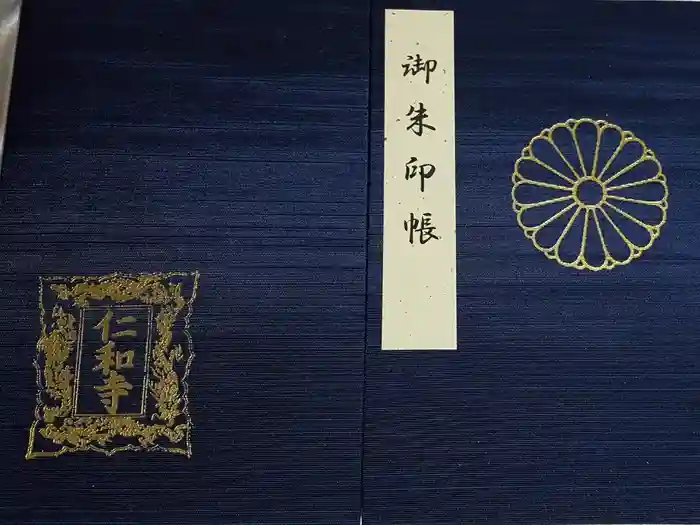 御朱印帳
仁和寺